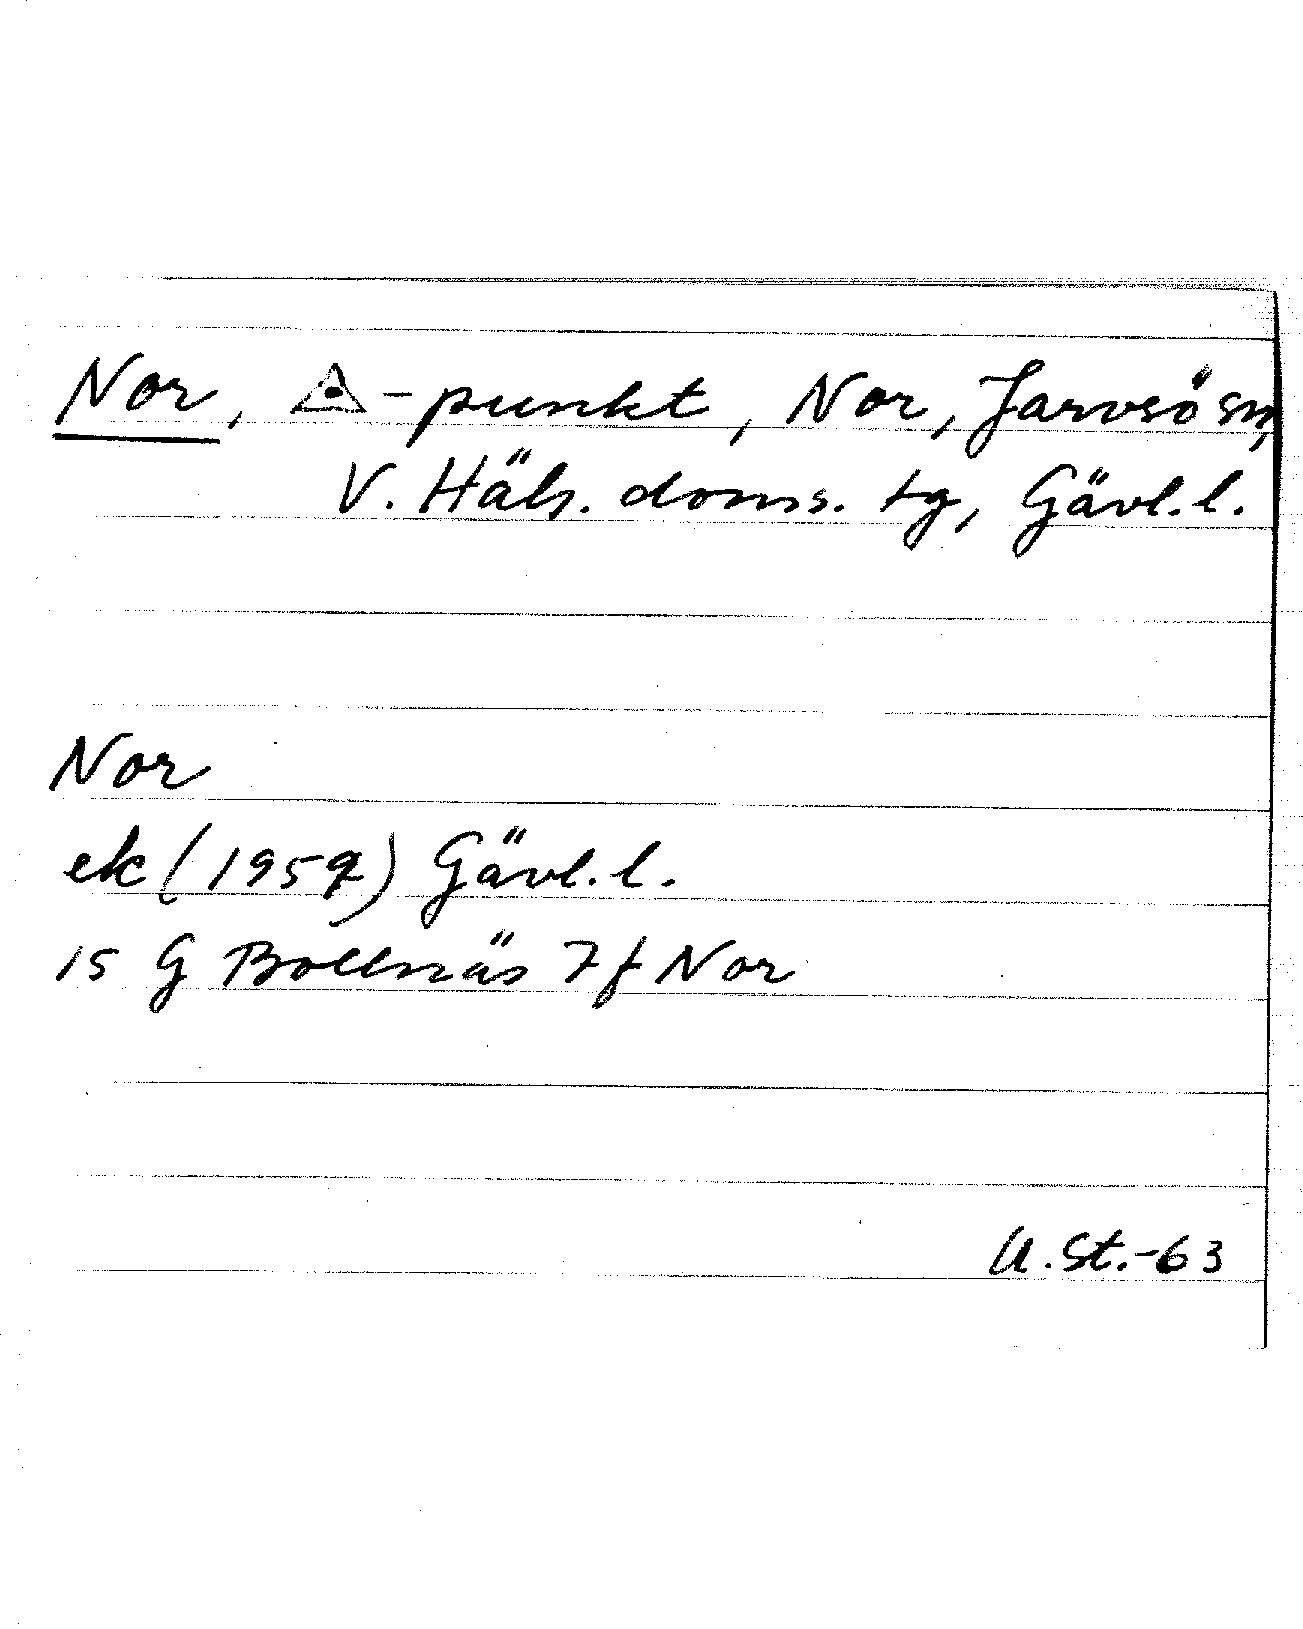 Nor, ◬-punkt, Nor, Jarvsö sn,
V. Häls. doms. tg, Gävl. l.
Nor
ek (1959) Gävl. l.
15 G Bollnäs 7 f Nor
U. St. -63